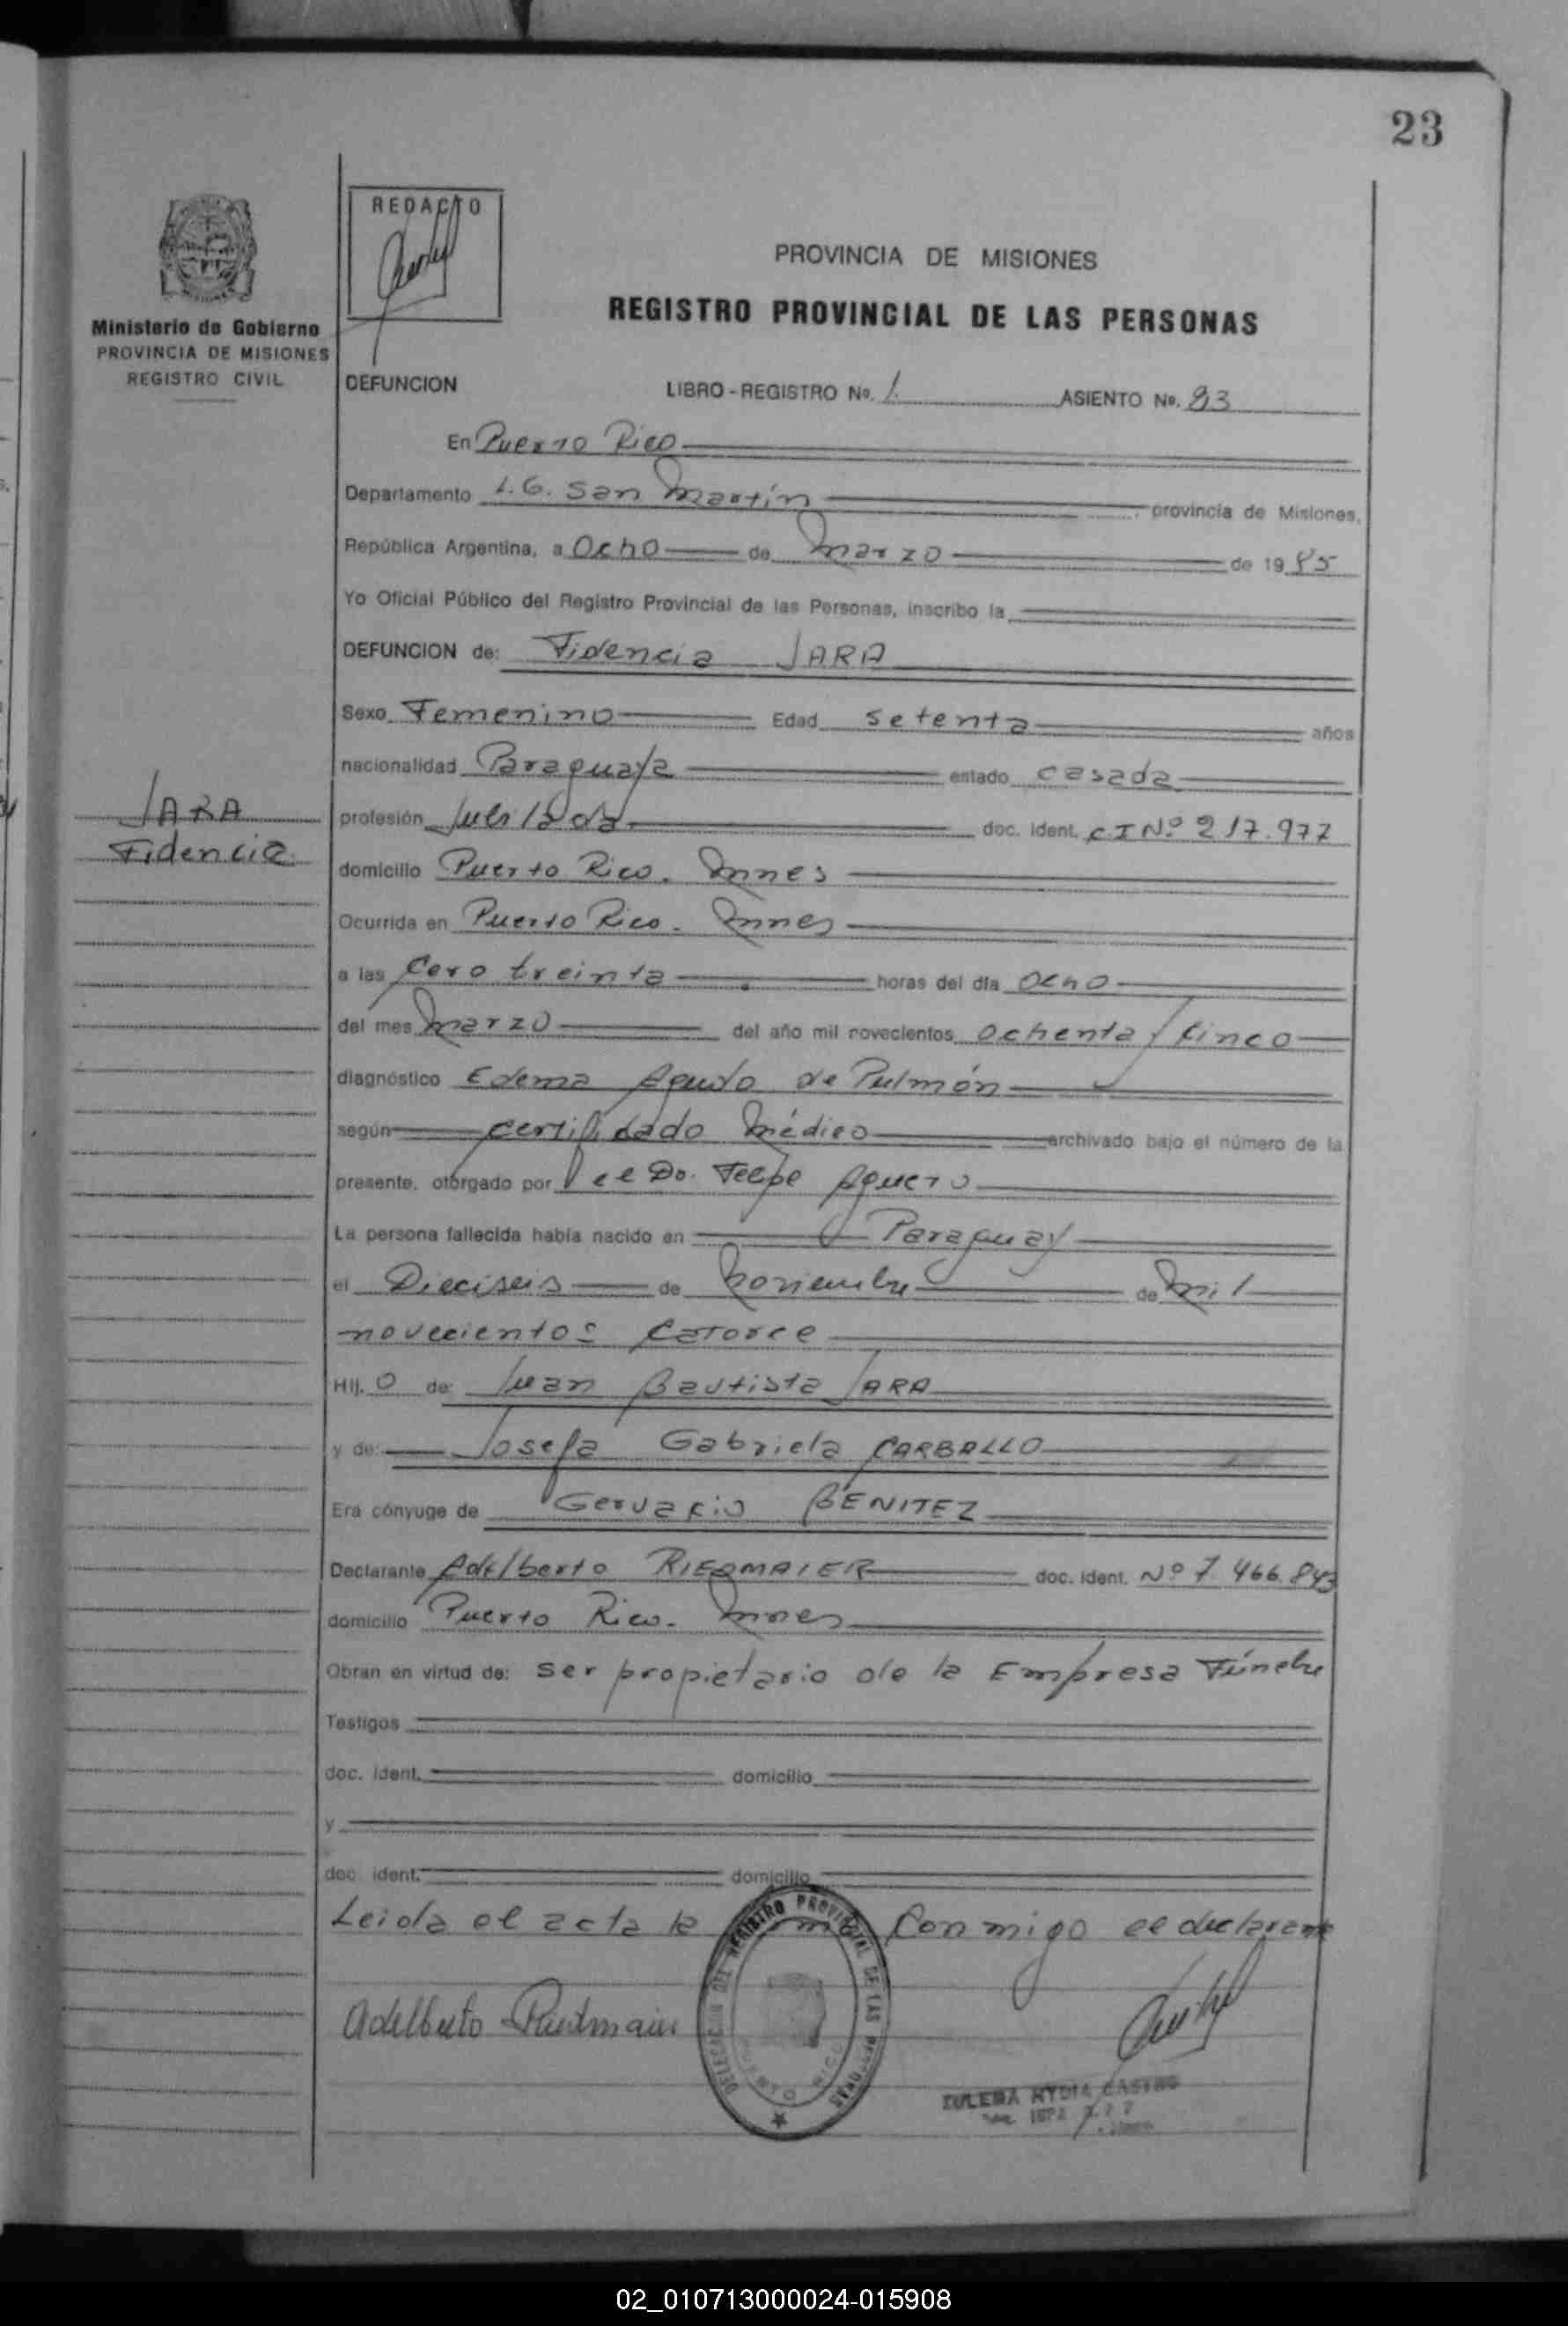 23
REDACTO
PROVINCIA DE MISIONES
REGISTRO PROVINCIAL DE LAS PERSONAS
Ministerio de Gobierno
PROVINCIA DE MISIONES
REGISTRO CIVIL
DEFUNCION LIBRO-REGISTRO No. 1. ASIENTO No.
En Puerto Rico
Departamento L.G. San Martín provincia de Misiones,
República Argentina, a Ocho de Marzo de 19 85
Yo Oficial Público del Registro Provincial de las Personas, inscribo la
DEFUNCION de: Fidencia JARA
Sexo Femenino Edad setenta años
nacionalidad Paraguaya estado casada
JARA
Fidencia
profesión Jubilada. doc. ident. C.I Nº 217.977
domicilio Puerto Rico. Mnes
Ocurrida en Puerto Rico. Mnes
a las Cero treinta horas del día ocho
del mes Marzo del año mil novecientos ochenta y cinco
diagnóstico Edema Agudo de Pulmón
según certificado Médico archivado bajo el número de la
presente, otorgado por el Dr. Felipe Aguero
La persona fallecida había nacido en Paraguay
el Dieciseis de Noviembre de Mil
novecientos Catorce
Hij. O de: Juan Bautista JARA
y de: Josefa Gabriela CARBALLO
Era cónyuge de Gervacio BENITEZ
Declarante Adelberto doc. ident. Nº 7.466.843
domicilio Puerto Rico. Mnes
Obran en virtud de: ser propietario de la Empresa Fúnebre
Testigos
doc. ident. domicilio
y
doc. ident. domicilio
Leida el acta la conmigo el declarante
Adelberto
DELEGACION DEL REGISTRO PROVINCIAL DE LAS PERSONAS
PUERTO RICO
ZULEMA NYDIA CASTRO
02_010713000024-015908